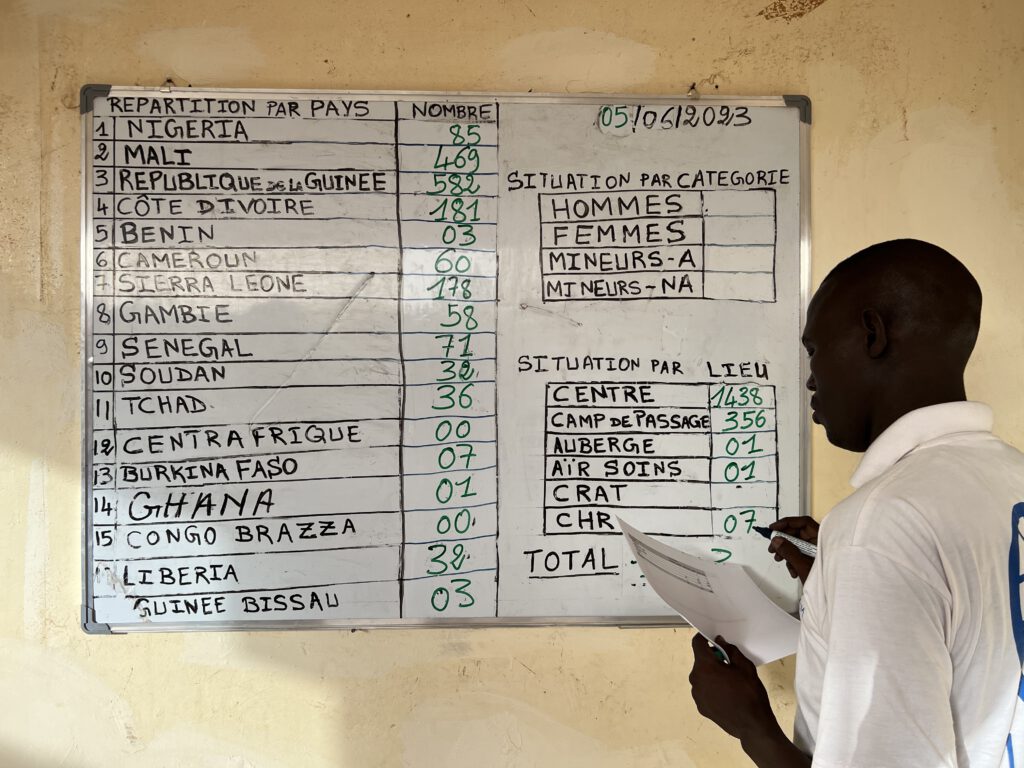 REPARTITION PAR PAYS NOMBRE
1 NIGERIA 85
2 MALI 469
3 REPUBLIQUE DE LA GUINEE 582
4 CÔTE D'IVOIRE 181
5 BENIN 03
6 CAMEROUN 60
7 SIERRA LEONE 178
8 GAMBIE 58
9 SENEGAL 71
10 SOUDAN 32
11 TCHAD 36
12 CENTRAFRIQUE 00
13 BURKINA FASO 07
14 GHANA 01
15 CONGO BRAZZA 00
LIBERIA 32
GUINEE BISSAU 03
05/06/2023
SITUATION PAR CATEGORIE
HOMMES
FEMMES
MINEURS-A
MINEURS-NA
SITUATION PAR LIEU
CENTRE 1438
CAMP DE PASSAGE 356
AUBERGE 01
AÏR SOINS 01
CRAT
CHR 07
TOTAL